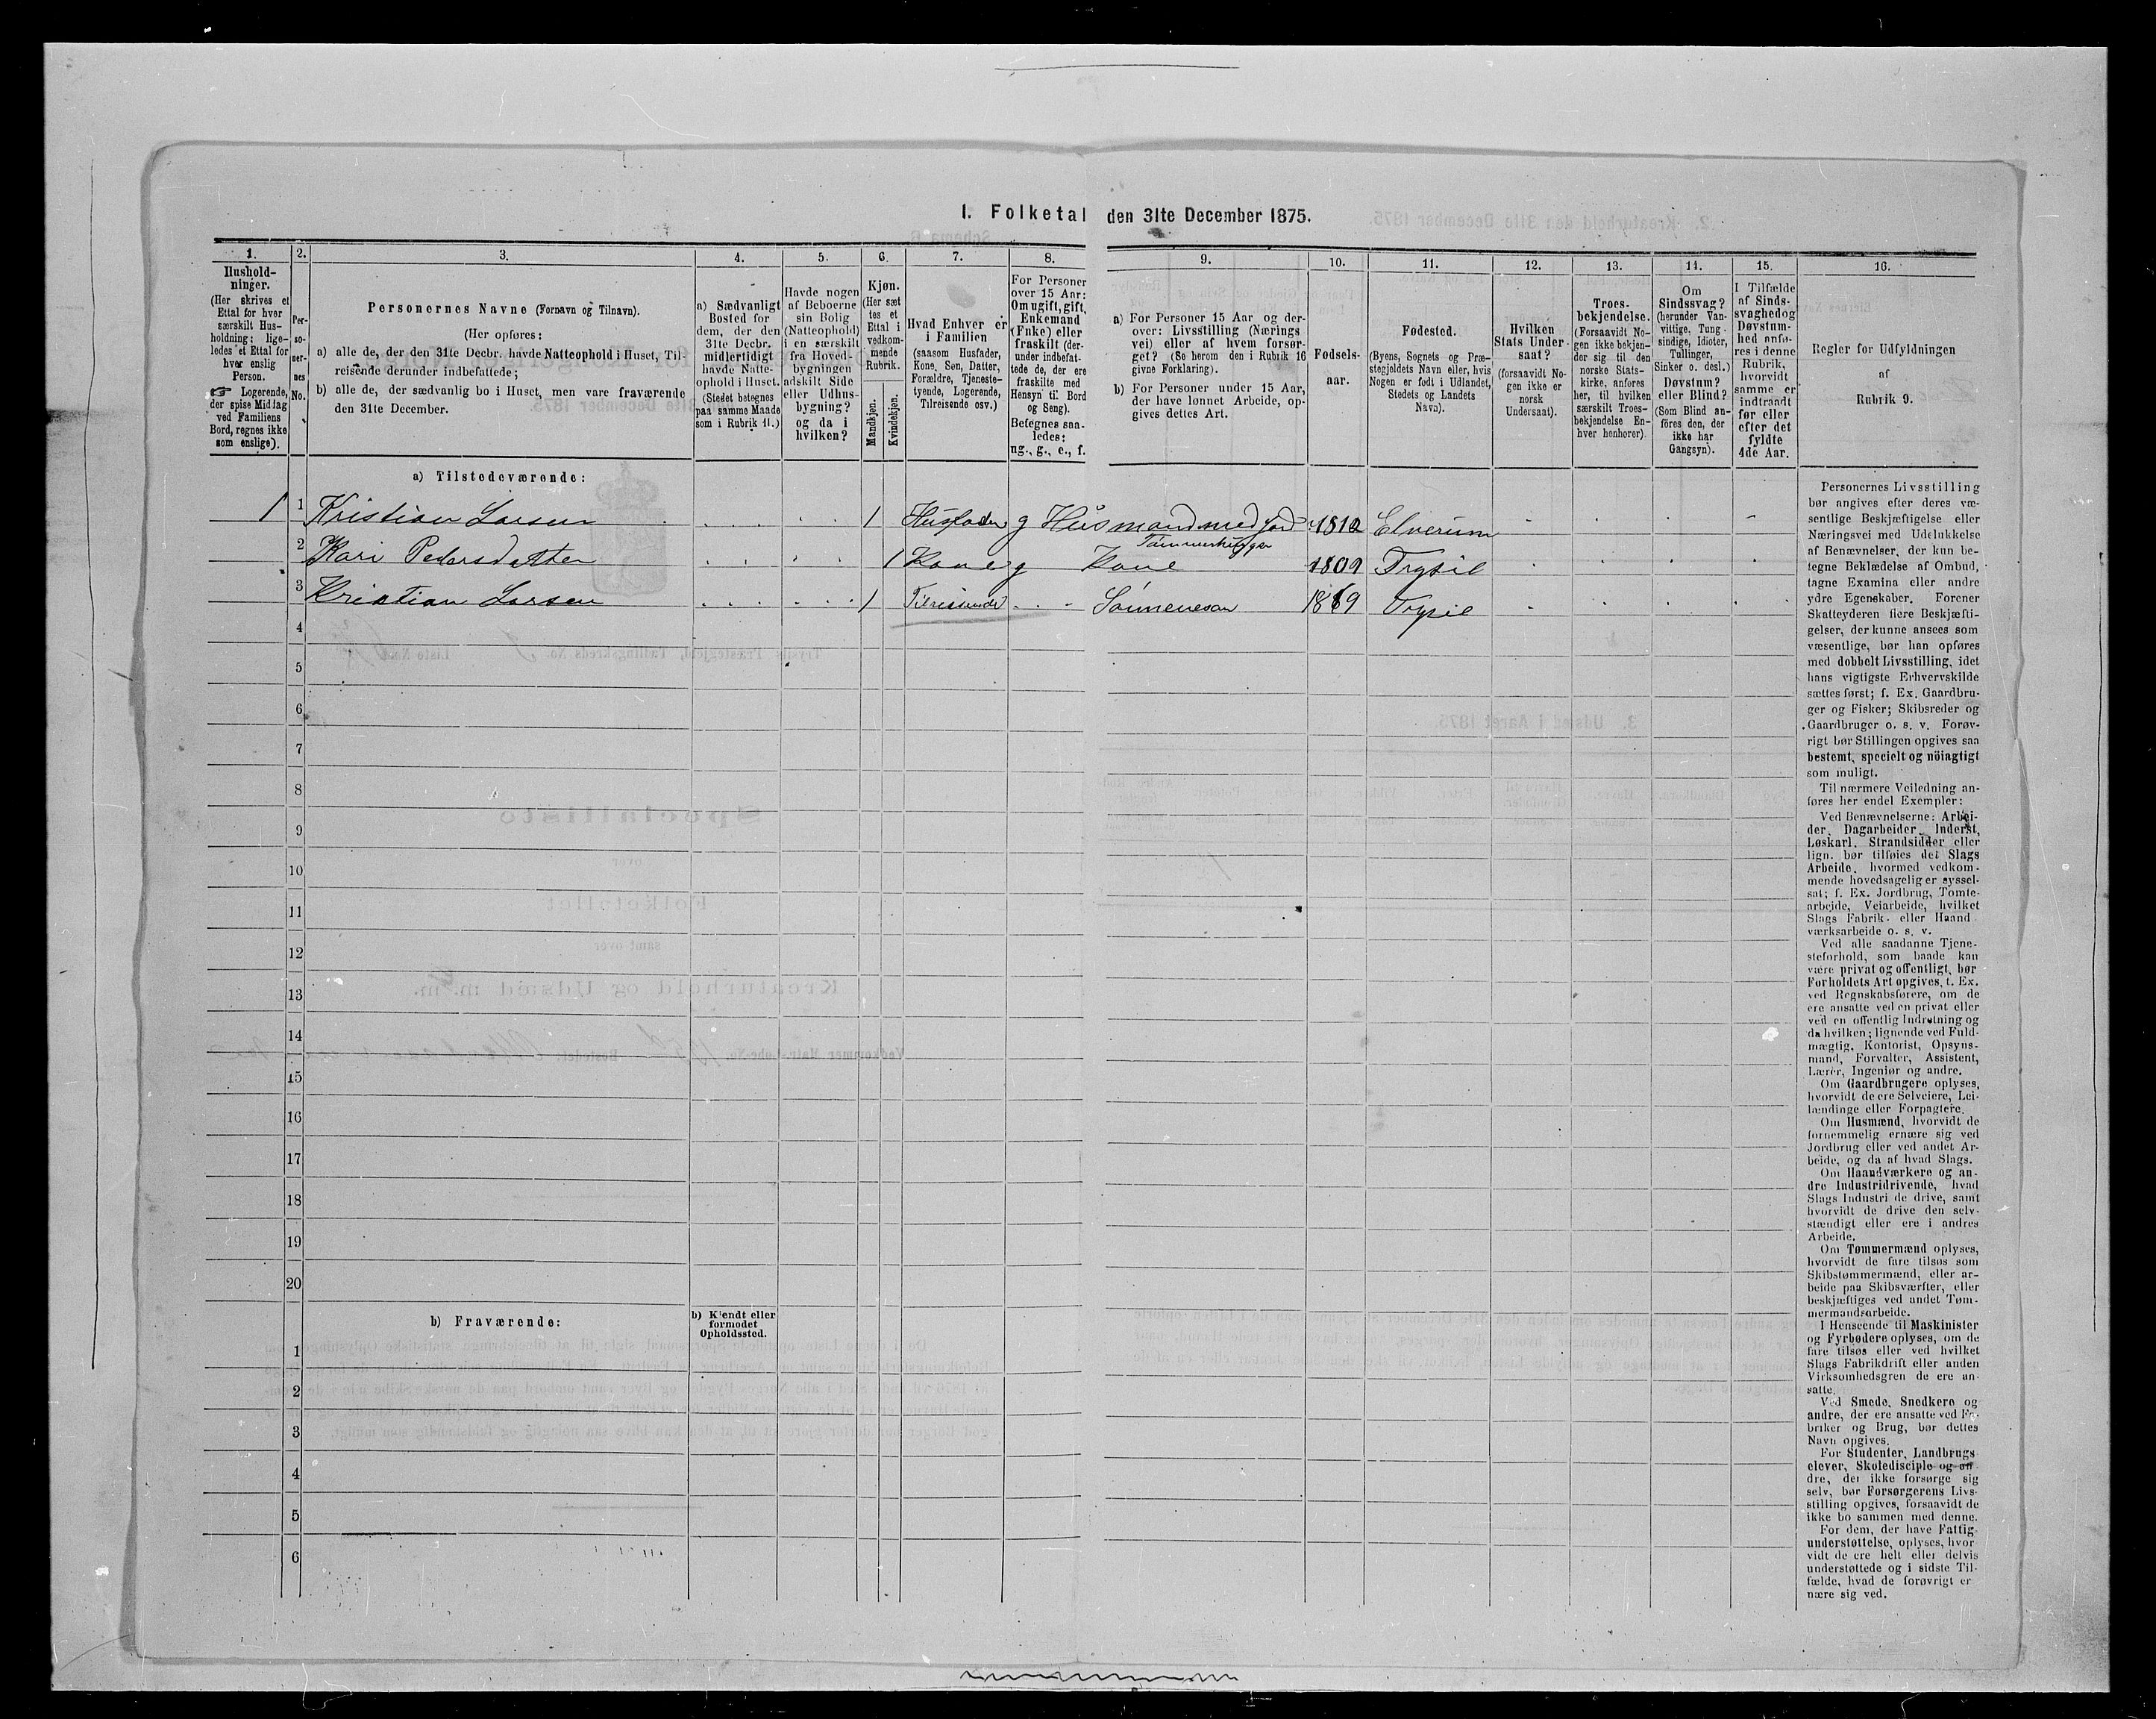 1. Folketal den 31te December 1875.
1.
Hushold-
ninger.
(Her skrives et
Ettal for hver
særskilt Hus-
holdning; lige-
ledes et Ettal for
hver enslig
Person.
☞ Logerende,
der spise Middag
ved Familiens
Bord, regnes ikke
som enslige).
2.
Per-
so-
ner-
nes
No.
3.
Personernes Navne (Fornavn og Tilnavn).
(Her opføres:
a) alle de, der den 31te Decbr. havde Natteophold i Huset, Til-
reisende derunder indbefattede;
b) alle de, der sædvanlig bo i Huset, men vare fraværende
den 31te December.
4.
a) Sædvanligt
Bosted for
dem, der den
31te Decbr.
midlertidigt
havde Natte-
ophold i Huset.
(Stedet betegnes
paa samme Maade
som i Rubrik 11.)
5.
Havde nogen
af Beboerne
sin Bolig
(Natteophold)
i en særskilt
fra Hoved-
bygningen
adskilt Side
eller Udhus-
bygning?
og da i
hvilken?
6.
Kjøn.
(Her sæt
tes et
Ettal i
vedkom-
mende
Rubrik.
Mandkjøn.
Kvindekjøn.
7.
Hvad Enhver er
i Familien
(saasom Husfader,
Kone, Søn, Datter,
Forældre, Tjeneste-
tyende, Logerende,
Tilreisende osv.)
8.
For Personer
over 15 Aar:
Om ugift, gift,
Enkemand
(Enke) eller
fraskilt (der-
under indbefat-
tede de, der ere
fraskilte med
Hensyn til Bord
og Seng).
Betegnes saa-
ledes:
ug., g., e., f.
9.
a) For Personer 15 Aar og der-
over: Livsstilling (Nærings
vei) eller af hvem forsør-
get? (Se herom den i Rubrik 16
givne Forklaring).
b) For Personer under 15 Aar,
der have lønnet Arbeide, op-
gives dettes Art.
10.
Fødsels-
aar.
11.
Fødested.
(Byens, Sognets og Præ-
stegjeldets Navn eller, hvis
Nogen er født i Udlandet,
Stedets og Landets
Navn).
12.
Hvilken
Stats Under
saat?
(forsaavidt No-
gen ikke er
norsk
Undersaat).
13.
Troes-
bekjendelse.
(Forsaavidt No-
gen ikke bekjen-
der sig til den
norske Stats-
kirke, anføres
her, til hvilken
særskilt Troes-
bekjendelse En-
hver henhører).
14.
Om
Sindssvag?
(herunder Van-
vittige, Tung-
sindige, Idioter,
Tullinger,
Sinker o. desl.)
Døvstum?
eller Blind?
(Som Blind an-
føres den, der
ikke har
Gangsyn).
15.
I Tilfælde
af Sinds-
svaghed og
Døvstum-
hed anfø-
res i denne
Rubrik,
hvorvidt
samme er
indtraadt
før eller
efter det
fyldte
4de Aar.
16.
Regler for Udfyldningen
af
Rubrik 9.
a) Tilstedeværende:
1 1 Kristian Larsen 1 Husfader g Husmand med jord 1812 Elverum
Tømmerhugger
2 Kari Pedersdatter 1 Kone g Kone 1809 Trysil
3 Kristian Larsen 1 Tilreisende Sønnesøn 1869 Trysil
4
5
6
7
8
9
10
11
12
13
14
15
16
17
18
19
20
b) Fraværende:
b) Kjendt eller
formodet
Opholdssted.
1
2
3
4
5
6
Personernes Livsstilling
bør angives efter deres væ-
sentlige Beskjæftigelse eller
Næringsvei med Udelukkelse
af Benævnelser, der kun be-
tegne Beklædelse af Ombud,
tagne Examina eller andre
ydre Egenskaber. Forener
Skatteyderen flere Beskjæfti-
gelser, der kunne ansees som
væsentlige, bør han opføres
med dobbelt Livsstilling, idet
hans vigtigste Erhvervskilde
sættes først; f. Ex. Gaardbru-
ger og Fisker; Skibsreder og
Gaardbruger o. s. v. Forøv-
rigt bør Stillingen opgives saa
bestemt, specielt og nöiagtigt
som muligt.
Til nærmere Veiledning an-
føres her endel Exempler:
Ved Benævnelserne: Arbei-
der, Dagarbeider, Inderst,
Løskarl, Strandsidder eller
lign. bør tilføies det Slags
Arbeide, hvormed vedkom-
mende hovedsagelig er syssel-
sat; f. Ex. Jordbrug, Tomte-
arbeide, Veiarbeide, hvilket
Slags Fabrik- eller Haand-
værksarbeide o. s. v.
Ved alle saadanne Tjene-
steforhold, som baade kan
være privat og offentligt, bør
Forholdets Art opgives, f. Ex.
ved Regnskabsførere, om de
ere ansatte ved en privat eller
ved en offentlig Indretning og
da hvilken; lignende ved Fuld-
mægtig, Kontorist, Opsyns-
mand, Forvalter, Assistent,
Lærer, Ingeniør og andre.
Om Gaardbrugere oplyses,
hvorvidt de ere Selveiere, Lei-
lændinge eller Forpagtere.
Om Husmænd, hvorvidt de
fornemmelig ernære sig ved
Jordbrug eller ved andet Ar-
beide, og da af hvad Slags.
Om Haandværkere og an-
dre Industridrivende, hvad
Slags Industri de drive, samt
hvorvidt de drive den selv-
stændigt eller ere i andres
Arbeide.
Om Tømmermænd oplyses,
hvorvidt de fare tilsøs som
Skibstømmermænd, eller ar-
beide paa Skibsværfter, eller
beskjæftiges ved andet Tøm-
mermandsarbeide.
I Henseende til Maskinister
og Fyrbødere oplyses, om de
fare tilsøs eller ved hvilket
Slags Fabrikdrift eller anden
Virksomhedsgren de ere an-
satte.
Ved Smede, Snedkere og
andre, der ere ansatte ved Fa-
briker og Brug, bør dettes
Navn opgives.
For Studenter, Landbrugs
elever, Skoledisciple og an-
dre, der ikke forsørge sig
selv, bør Forsørgerens Livs-
stilling opgives, forsaavidt de
ikke bo sammen med denne.
For dem, der have Fattig-
understøttelse, oplyses, hvor
vidt de ere helt eller delvis
understøttede og i sidste Til-
fælde, hvad de forøvrigt er
nære sig ved.